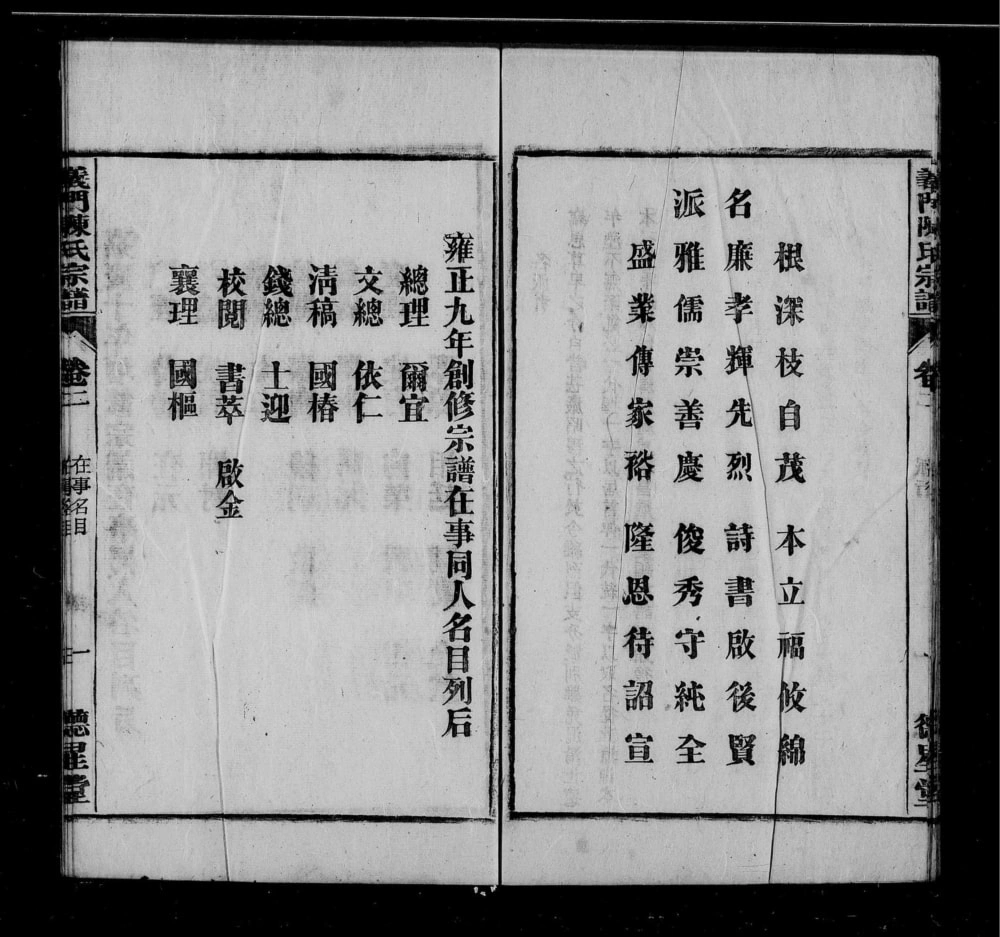 義門陳氏宗譜 卷二 一 德星堂
根深枝自茂 本立福攸綿
名廉孝輝先烈 詩書啟後賢
派雅儒崇善慶 俊秀守純全
盛業傳家裕 隆恩待詔宣
雍正九年創修宗譜在事同人名目列后
總理 爾宜
文總 依仁
淸稿 國椿
錢總 士迎
校閱 書萃 啟金
襄理 國樞
義門陳氏宗譜 卷二 在事名目 一 德星堂